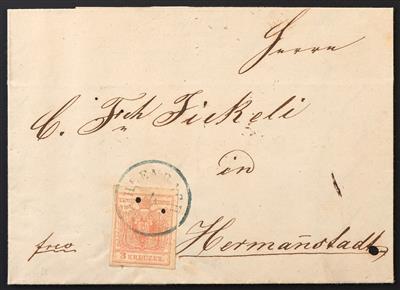 Herrn
C. Frch Jickeli
in
Hermañstadt
frco
3 KREUZER